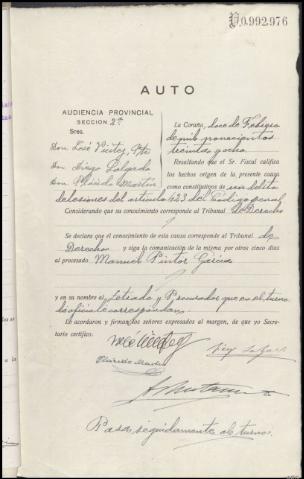 0.992.976
AUTO
AUDIENCIA PROVINCIAL
SECCION 2ª
Sres.
Don Luis
Don Diego Salgado
Don Plácido Martín
La Coruña, doce de Febrero
de mil novecientos
treinta y ocho
Resultando que el Sr. Fiscal califica
los hechos origen de la presente causa
como constitutivos de un delito
de lesiones del artículo 423 del Código penal
Considerando que su conocimiento corresponde al Tribunal de Derecho
Se declara que el conocimiento de esta causa corresponde al Tribunal de
Derecho y siga la comunicación de la misma por otros cinco días
al procesado Manuel Pintor García
y en su nombre al Letrado y Procurador que en el turno
de oficio correspondan.
Lo acordaron y firman los señores expresados al margen, de que yo Secre-
tario certifico.
Pasa seguidamente al turno.